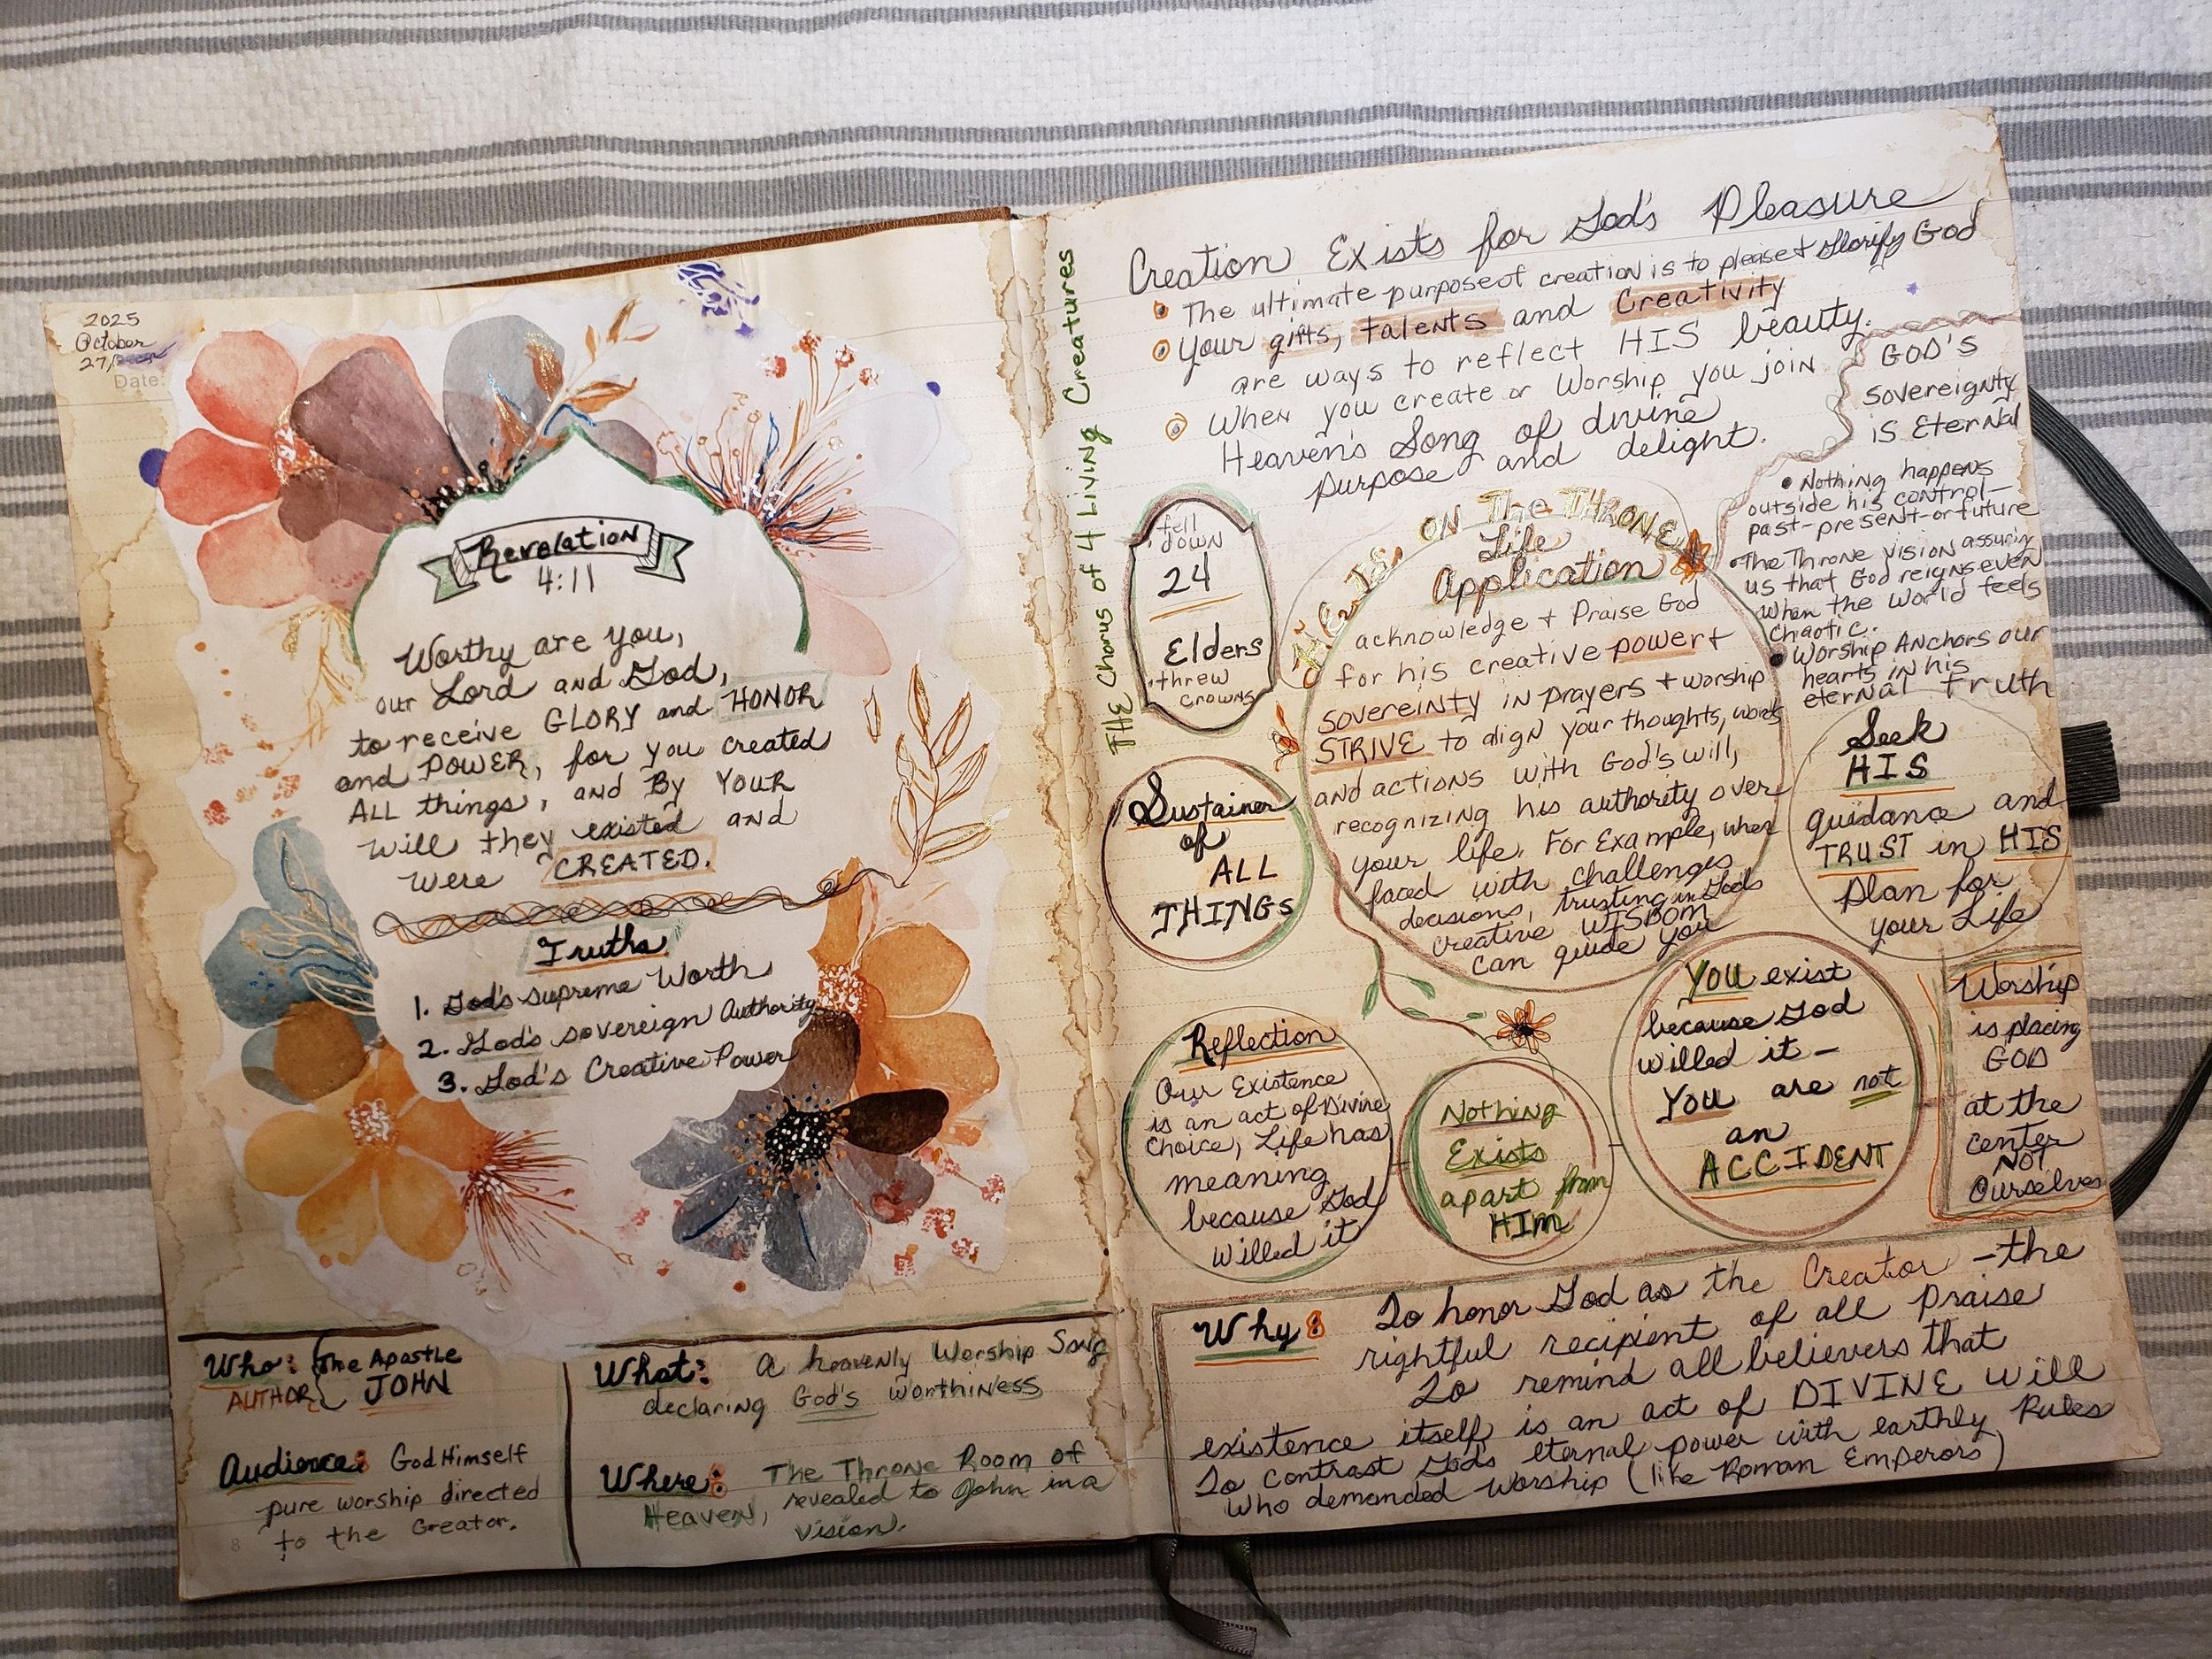 2025
October
27,
Date:
Revelation
4:11
Worthy are you,
our Lord and God,
to receive GLORY and HONOR
and POWER, for you created
ALL things, and By YOUR
will they existed and
were CREATED.
Truths
1. God's supreme Worth
2. God's sovereign Authority
3. God's Creative Power
Who: The Apostle
AUTHOR JOHN
Audience: God Himself
pure worship directed
to the Creator.
8
What: a heavenly Worship Song
declaring God's worthiness
Where: The Throne Room of
Heaven, revealed to John in a
vision.
THE Chorus of 4 Living Creatures
Creation Exists for God's Pleasure
• The ultimate purpose of creation is to please + Glorify God
• Your gifts, talents and Creativity
are ways to reflect HIS beauty.
• When you create or Worship you join
Heaven's Song of divine
purpose and delight.
GOD'S
Sovereignty
is Eternal
• Nothing happens
outside his control—
past-present-or future
• The Throne vision assuring
us that God reigns even
when the World feels
chaotic.
• Worship Anchors our
hearts in his
eternal truth
fell
down
24
Elders
threw
crowns
He Is ON The THRONE
Life
Application
acknowledge + Praise God
for his creative power +
Sovereinty in prayers + worship
STRIVE to align your thoughts, words
and actions with God's will,
recognizing his authority over
your life. For Example, when
faced with challenges
decisions, trusting in God's
creative WISDOM
can guide you
Sustainer
of
ALL
THINGS
Seek
HIS
guidance and
TRUST in HIS
plan for
your Life
Reflection
Our Existence
is an act of Divine
Choice, Life has
meaning
because God
willed it
Nothing
Exists
apart from
HIM
YOU exist
because God
willed it —
YOU are not
an
ACCIDENT
Worship
is placing
GOD
at the
center
NOT
Ourselves
Why: To honor God as the Creator - the
rightful recipient of all praise
To remind all believers that
existence itself is an act of DIVINE will
To contrast God's eternal power with earthly Rules
who demanded worship (like Roman Emperors)